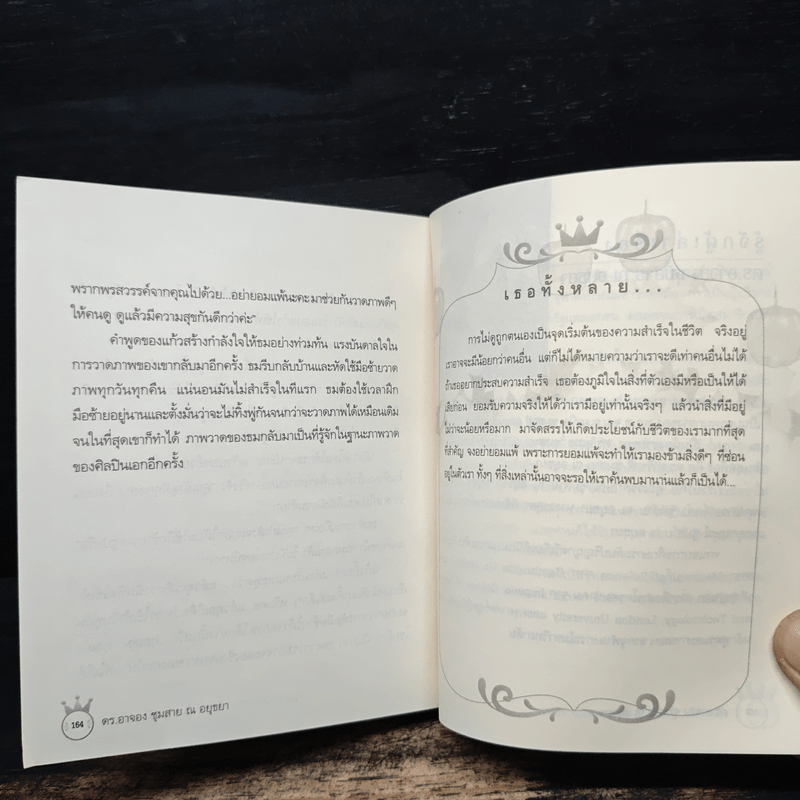 พรากพรสวรรค์จากคุณไปด้วย...อย่ายอมแพ้นะคะ มาช่วยกันวาดภาพดีๆ
ให้คนดู ดูแล้วมีความสุขกันดีกว่าค่ะ"
คำพูดของแก้วสร้างกำลังใจให้ธมอย่างท่วมท้น แรงบันดาลใจใน
การวาดภาพของเขากลับมาอีกครั้ง ธมรีบกลับบ้านและหัดใช้มือซ้ายวาด
ภาพทุกวันทุกคืน แน่นอนมันไม่สำเร็จในทีแรก ธมต้องใช้เวลาฝึก
มือซ้ายอยู่นานและตั้งมั่นว่าจะไม่ทิ้งพู่กันจนกว่าจะวาดภาพได้เหมือนเดิม
จนในที่สุดเขาก็ทำได้ ภาพวาดของธมกลับมาเป็นที่รู้จักในฐานะภาพวาด
ของศิลปินเอกอีกครั้ง
164 ดร.อาจอง ชุมสาย ณ อยุธยา
เธอทั้งหลาย...
การไม่ดูถูกตนเองเป็นจุดเริ่มต้นของความสำเร็จในชีวิต จริงอยู่
เราอาจจะมีน้อยกว่าคนอื่น แต่ก็ไม่ได้หมายความว่าเราจะดีเท่าคนอื่นไม่ได้
ถ้าเธออยากประสบความสำเร็จ เธอต้องภูมิใจในสิ่งที่ตัวเองมีหรือเป็นให้ได้
เสียก่อน ยอมรับความจริงให้ได้ว่าเรามีอยู่เท่านั้นจริงๆ แล้วนำสิ่งที่มีอยู่
ไม่ว่าจะน้อยหรือมาก มาจัดสรรให้เกิดประโยชน์กับชีวิตของเรามากที่สุด
ที่สำคัญ จงอย่ายอมแพ้ เพราะการยอมแพ้จะทำให้เรามองข้ามสิ่งดีๆ ที่ซ่อน
อยู่ในตัวเรา ทั้งๆ ที่สิ่งเหล่านั้นอาจจะรอให้เราค้นพบมานานแล้วก็เป็นได้...